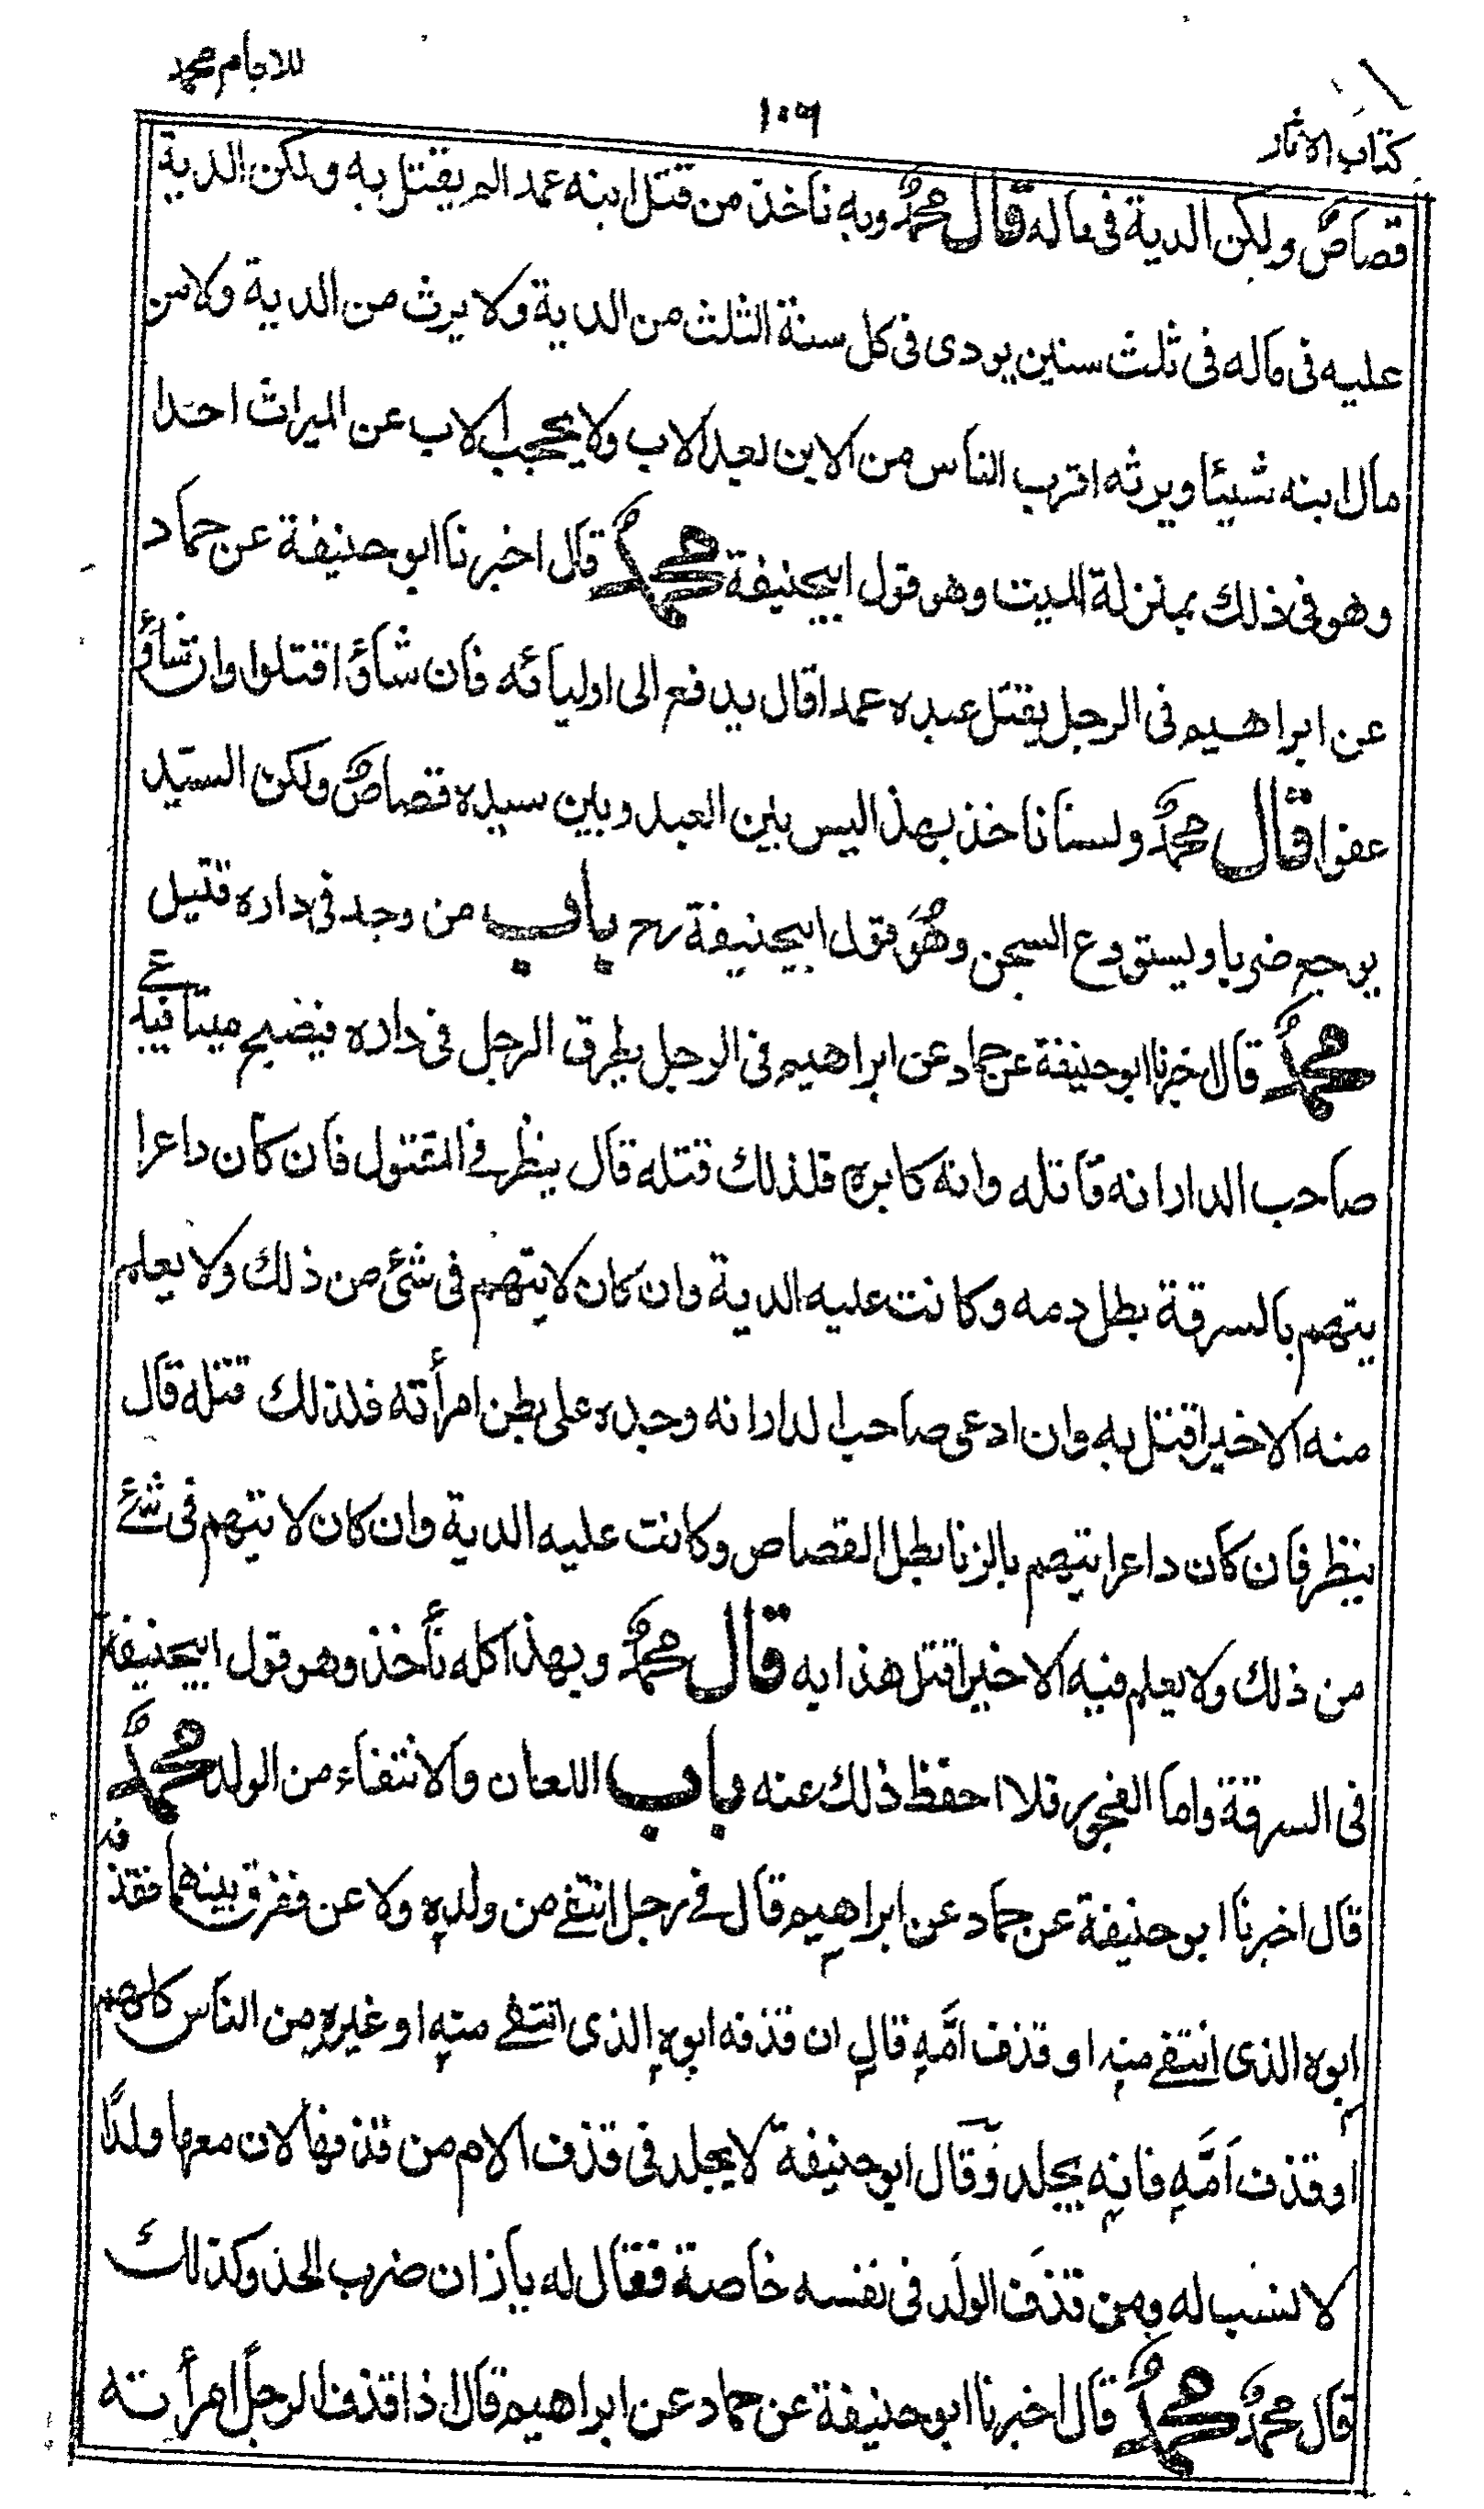 كتاب الاثار
١٠٩
للامام محمد
قصاص ولكن الدية فى ماله قال محمد وبه ناخذ من قتل ابنه عمدا لم يقتل به ولكن الدية
عليه فى ماله فى ثلث سنين يودى فى كل سنة الثلث من الدية ولا يرث من الدية ولا من
مال ابنه شيئا ويرثه اقرب الناس من الابن بعد الاب ولا يحجب الاب عن الميراث احدا
وهو فى ذلك بمنزلة الميت وهو قول ابيحنيفة محمد قال اخبرنا ابو حنيفة عن حماد
عن ابراهيم فى الرجل يقتل عبده عمدا قال يدفع الى اوليائه فان شاؤا قتلوا وان شاؤا
عفوا قال محمد ولسنا ناخذ بهذا ليس بين العبد وبين سيده قصاص ولكن السيد
يوجع ضربا ويستودع السجن وهو قول ابيحنيفة رح باب من وجد فى داره قتيل
محمد قال اخبرنا ابو حنيفة عن حماد عن ابراهيم فى الرجل يطرق الرجل فى داره فيصبح ميتا فيدعى
صاحب الدار انه قاتله وانه كابره فلذلك قتله قال ينظر فى المقتول فان كان داعرا
يتهم بالسرقة بطل دمه وكانت عليه الدية وان كان لا يتهم فى شئ من ذلك ولا يعلم
منه الا خيرا قتل به وان ادعى صاحب الدار انه وجده على بطن امرأته فلذلك قتله قال
ينظر فان كان داعرا يتهم بالزنا بطل القصاص وكانت عليه الدية وان كان لا يتهم فى شئ
من ذلك ولا يعلم فيه الا خيرا قتل هذا به قال محمد وبهذا كله نأخذ وهو قول ابيحنيفة
فى السرقة واما الفجور فلا احفظ ذلك عنه باب اللعان والانتفاء من الولد محمد
قال اخبرنا ابو حنيفة عن حماد عن ابراهيم قال فى رجل انتفى من ولده ولاعن ففرق بينهما فقذفه
ابوه الذى انتفى منه او قذف امّه قال ان قذفه ابوه الذى انتفى منه او غيره من الناس كلهم
او قذف امّه فانه يجلد وقال ابو حنيفة لا يجلد فى قذف الام من قذفها لان معها ولدا
لا نسب له ومن قذف الولد فى نفسه خاصة فقال له يا زان ضرب الحد وكذلك
قال محمد محمد قال اخبرنا ابو حنيفة عن حماد عن ابراهيم قال اذا قذف الرجل امرأته